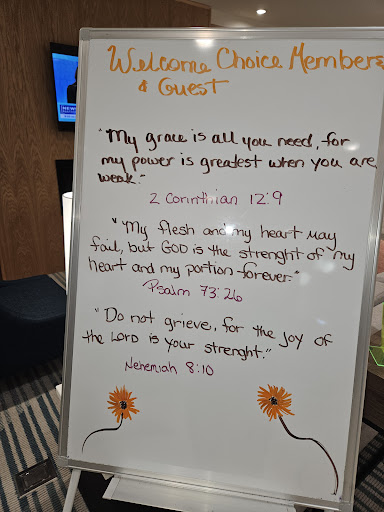 Welcome Choice Members
& Guest
"My grace is all you need, for
my power is greatest when you are
weak."
2 Corinthian 12:9
"My flesh and my heart may
fail, but GOD is the strenght of my
heart and my portion forever."
Psalm 73:26
"Do not grieve, for the joy of
the LORD is your strenght."
Nehemiah 8:10